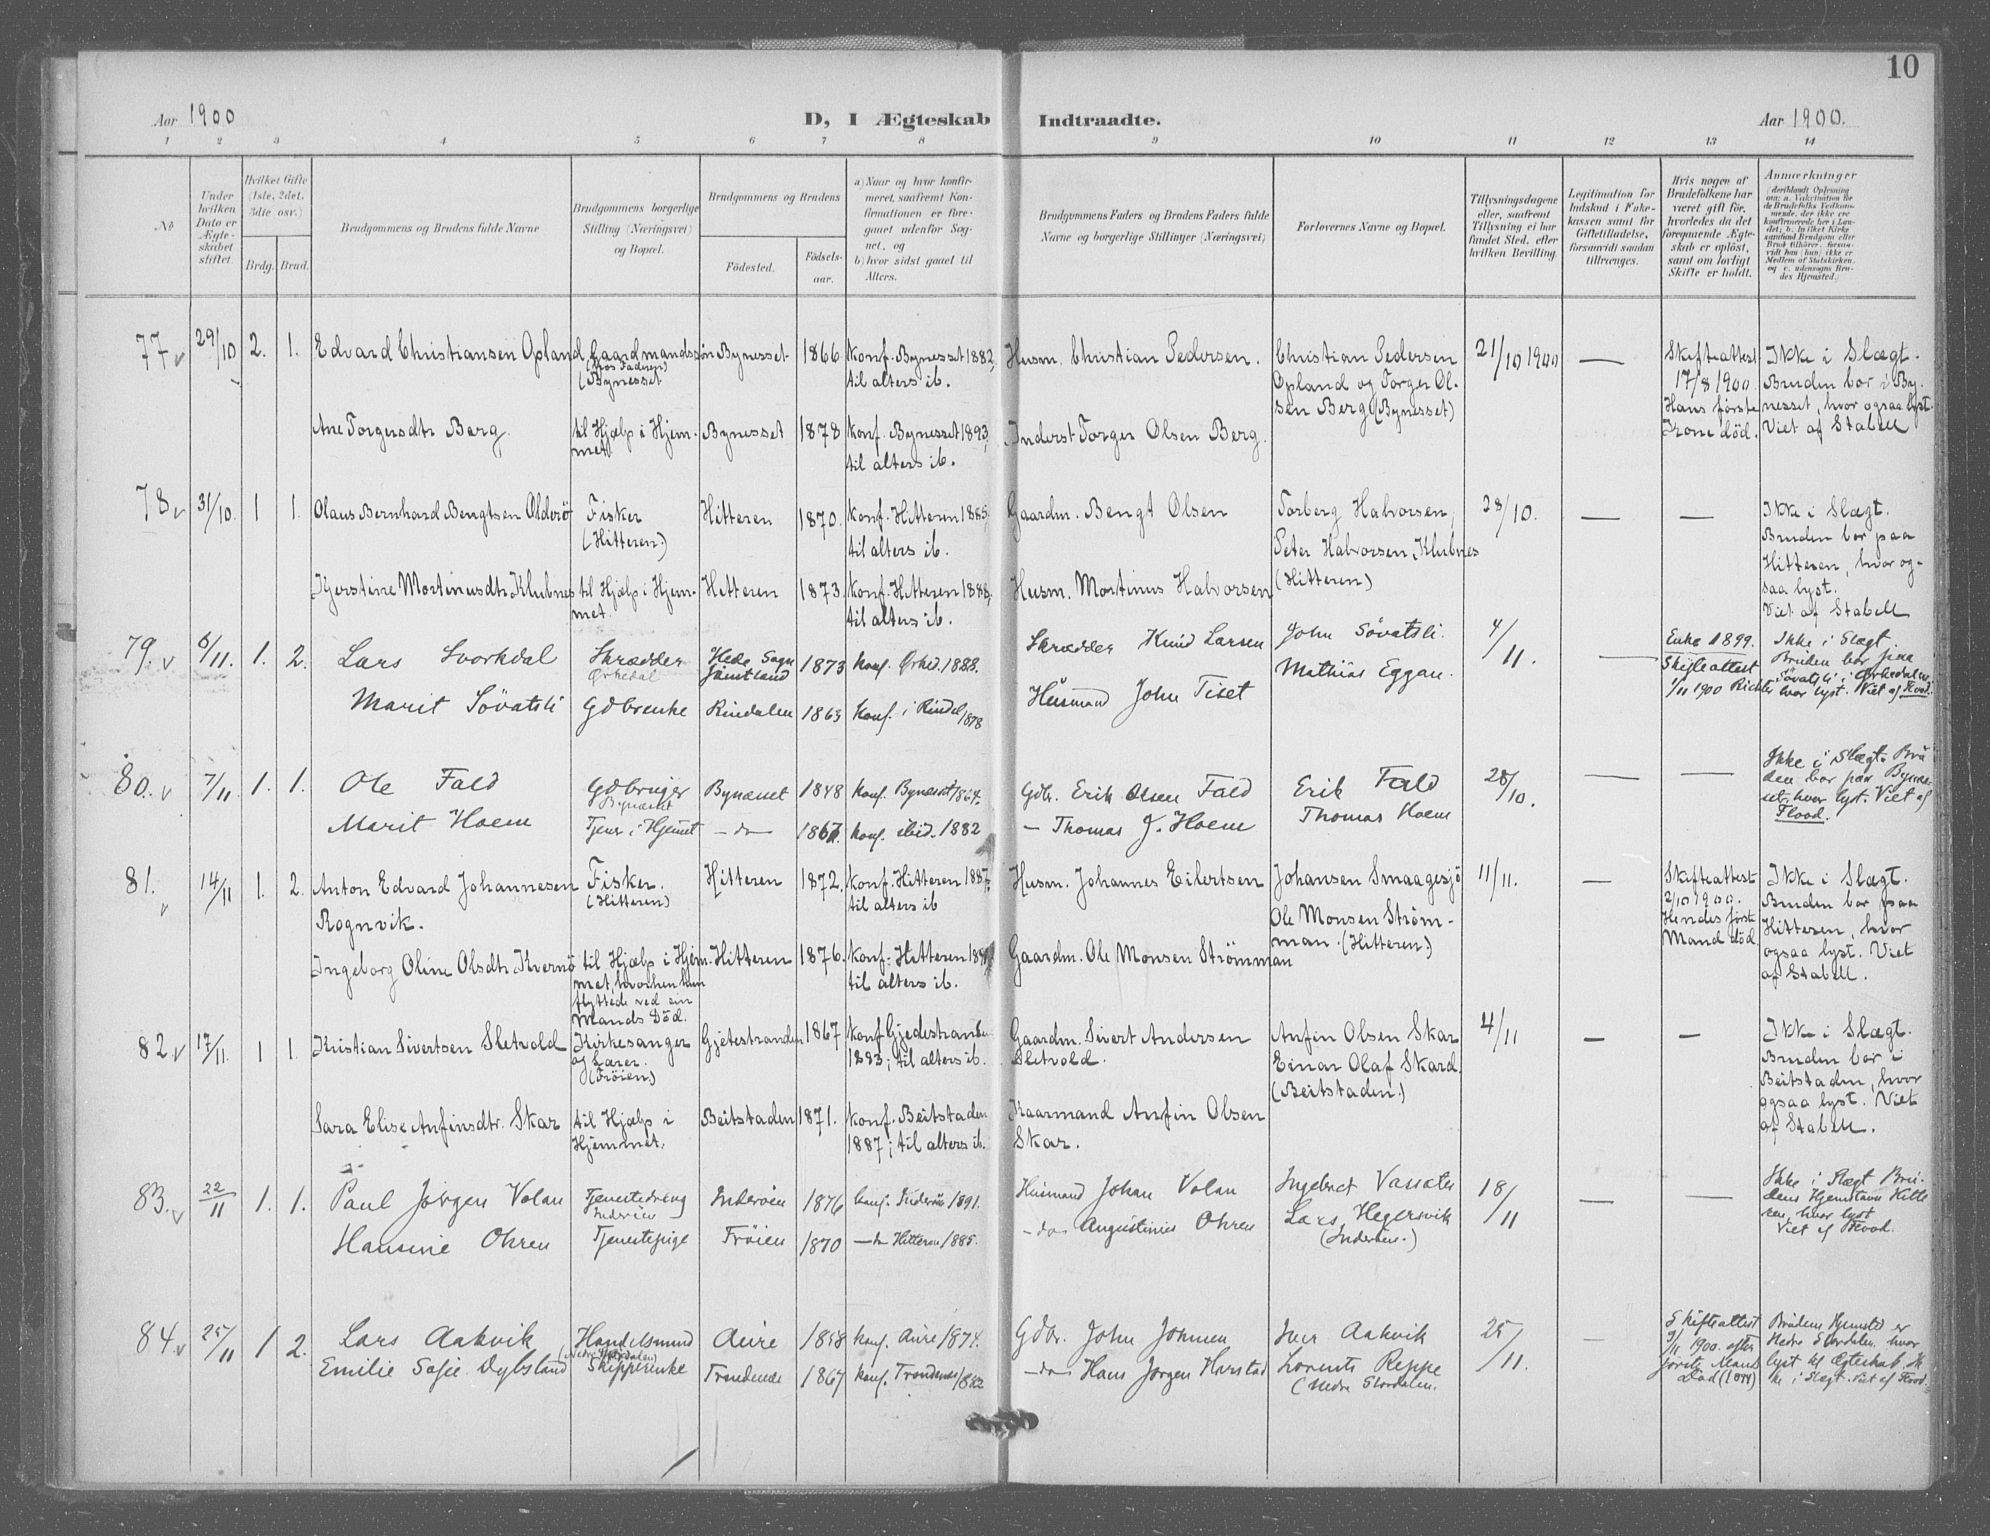 10
Aar 1900
D, I Ægteskab Indtraadte.
Aar 1900.
1 2 3 4 5 6 7 8 9 10 11 12 13 14
No
Under hvilken Dato er Ægteskabet stiftet.
Hvilket Gifte (1ste, 2det, 3die osv.)
Brdg. Brud.
Brudgommens og Brudens fulde Navne
Brudgommens borgerlige Stilling (Næringsvei) og Bopæl.
Brudgommens og Brudens
Födested.
Födselsaar.
a) Naar og hvor konfirmeret, saafremt Konfirmationen er foregaaet udenfor Sognet, og
b) hvor sidst gaaet til Alters.
Brudgommens Faders og Brudens Faders fulde Navne og borgerlige Stillinger (Næringsvei)
Forlovernes Navne og Bopæl.
Tillysningsdagene eller, saafremt Tillysning ei har fundet Sted, efter hvilken Bevilling.
Legitimation for Indskud i Enkekassen samt for Giftetilladelse, forsaavidt saadan tiltrænges.
Hvis nogen af Brudefolkene har været gift för, hvorledes da det foregaaende Ægteskab er oplöst, samt om lovligt Skifte er holdt.
Anmærkninger
77 29/10 2. 1. Edvard Christiansen Opland Gaardmandssøn (hos Faderen) (Bynesset Bynesset 1866 Konf. Bynesset 1882, til alters ib. Husm. Christian Pedersen. Christian Pedersen Opland og Torger Olsen Berg (Bynesset) 21/10 1900 — Skifteattest 17/8 1900 Hans første Kone död. Ikke i Slægt. Bruden bor i Bynesset, hvor ogsaa lyst. Viet af Stabell
Ane Torgersdtr Berg. til Hjælp i Hjemmet Bynesset 1878 Konf. Bynesset 1893, til alters ib. Inderst Torger Olsen Berg.
78 31/10. 1 1. Olaus Bernhard Bengtsen Olderö Fisker (Hitteren.) Hitteren 1870. Konf. Hitteren 1885. til alters ib. Gaardm. Bengt Olsen Torberg Halvorsen, Peter Halvorsen Klubnes (Hitteren) 28/10. — — Ikke i Slægt. Bruden bor paa Hitteren, hvor ogsaa lyst. Viet af Stabell
Kjerstine Martinusdtr Klubnes til Hjælp i Hjemmet. Hitteren 1873. Konf. Hitteren 1888, til alters ib. Husm. Martinus Halvorsen
79. 6/11. 1. 2. Lars Svorkdal Skrædder Orkedal Hede Sogn Jämtland 1873 Konf. Orked. 1888. Skrædder Knud Larsen John Sövatsli. 4/11. — Enke 1899. Skifteattest 1/11 1900 Richter Ikke i Slægt Bruden bor paa Søvatsli i Orkedalen hvor lyst. Viet af Flood.
Marit Sövatsli Gdbrenke Rindalen 1863 Konf. i Rindal 1878 Husmand John Tiset Mathias Eggan.
80. 7/11. 1. 1. Ole Fald Gdbruger Bynæsset Bynæsset 1848 Konf. Bynæsset 1864. Gdbr. Erik Olsen Fald Erik Fald 28/10. — — Ikke i Slægt. Bruden bor paa Bynæsset, hvor lyst. Viet af Flood.
Marit Hoem Tjener i Hjemmet —do— 1867. Konf. ibid. 1882 — Thomas J. Hoem Thomas Hoem
81. 14/11 1. 2. Anton Edvard Johannesen Rognvik. Fisker. (Hitteren) Hitteren 1872. Konf. Hitteren 1887, til alters ib Husm. Johannes Eilertsen Johansen Smaagesjö Ole Monsen Strömman. (Hitteren) 11/11. — Skifteattest 2/10 1900. Hendes første Mand död. Ikke i Slægt. Bruden bor paa Hitteren, hvor ogsaa lyst. Viet af Stabell.
Ingeborg Oline Olsdtr Kvernö til Hjælp i Hjemmet, hvorhen hun flyttede ved sin Mands Död. Hitteren 1876. Konf. Hitteren til alters ib. Gaardm. Ole Monsen Strömman
82 17/11. 1 1. Kristian Sivertsen Sletvold Kirkesanger og Lærer. (Frøien) Gjetestranden 1867 Konf. Gjedestranden 1883; til alters ib. Gaardm. Sivert Andersen Sletvold. Anfin Olsen Skar Einar Olaf Skard. (Beitstaden.) 4/11 — — Ikke i Slægt. Bruden bor i Beitstaden, hvor ogsaa lyst. Viet af Stabell.
Sara Elise Anfinsdtr. Skar til Hjælp i Hjemmet. Beitstaden 1871. Konf. Beitstaden 1887; til alters ib. Gaarmand Anfin Olsen Skar.
83. 22/11 1. 1. Paul Jørgen Volan Tjenestedreng Inderöen Inderöen 1876 konf. Inderöen 1891. Husmand Johan Volan Ingebret 18/11 — — Ikke i Slægt Brudens Hjemstavn Hitteren, hvor lyst Viet af Flood.
Hansine Ohren Tjenestepige Frøien 1870 —do Hitteren 1885. —do— Augustinus Ohren Lars Hegersvik (Inderöen.)
84 25/11 1 2. Lars Aakvik Handelsmand (Nedre Stordalen) Aure 1858 Konf. Aure 1874. Gdbr. John Johnsen Iver Aakvik 25/11. — Skifteattest 3/11 1900 efter første Mands Död Brudens Hjemsted er Nedre Stordalen, hvor lyst til Ægteskab. Ikke i Slægt. Viet af Flood.
Emilie Sofie Dybsland Skipperenke Trondenæs 1867 Konf. Trondenes 1882 —do— Hans Jørgen Harstad Lorents Reppe (Nedre Stordalen.